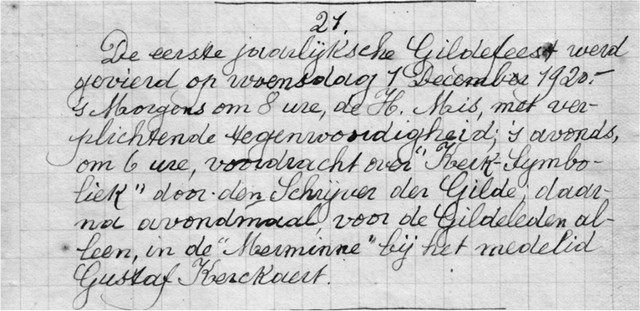 21.
De eerste jaarlijksche Gildefeest werd
gevierd op woensdag 1 December 1920.-
's Morgens om 8 ure, de H. Mis, met ver-
plichtende tegenwoordigheid; 's avonds,
om 6 ure, voordracht over "Kerk-Symbo-
liek" door den Schrijver der Gilde, daar-
na avondmaal, voor de Gildeleden al-
leen, in de "Merminne" bij het medelid
Gustaf Kerckaert.